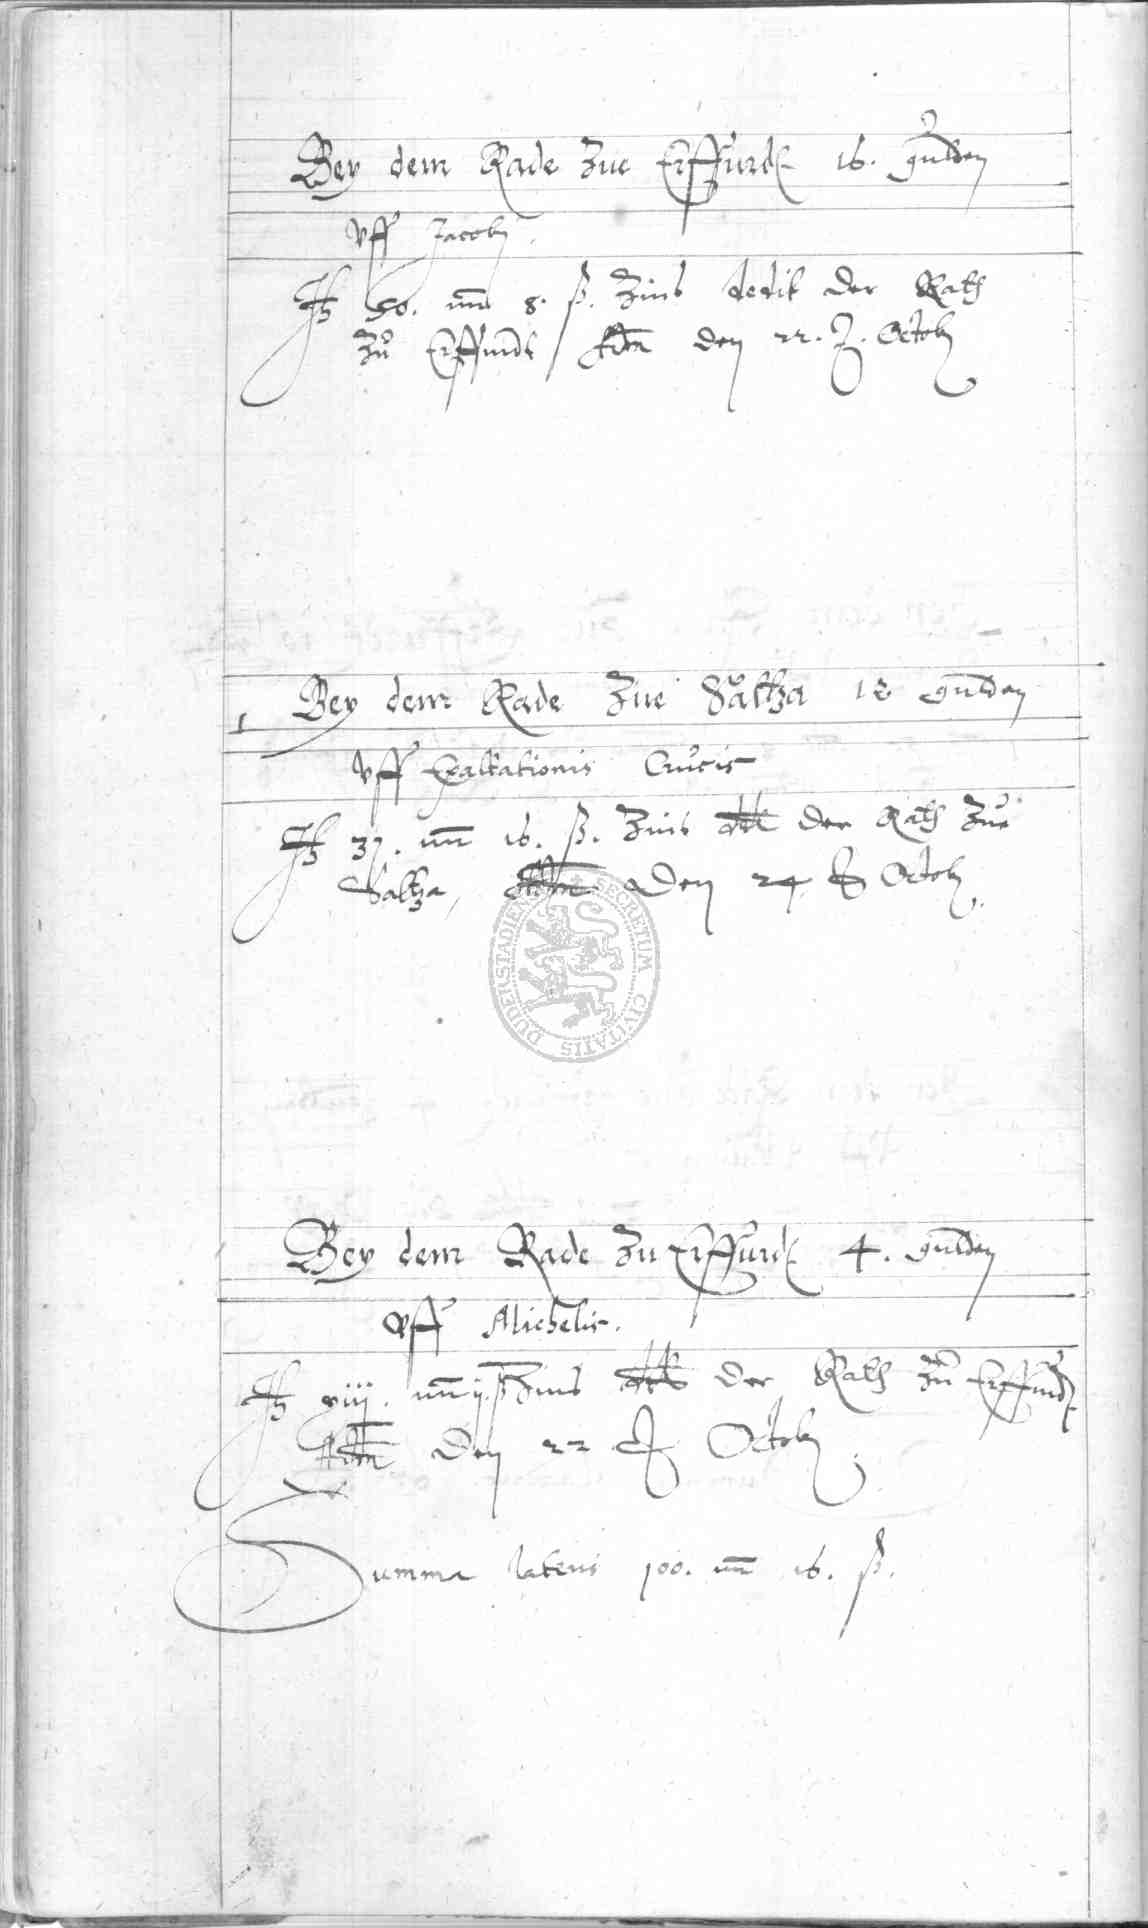 Bey dem Rade zue Erffurdt 16. gulden
vff Jacobi
It 50. mr 8. ß. Zins dedit der Rath
zu Erffurdt den 22. Octob
Bey dem Rade zue Saltza 12 gulden
vff Exaltationis Crucis
It 37. mr 16. ß. Zins der Rath zue
Saltza, den 24 Octob
SECRETUM CIVITATIS DUDERSTADIENSIS
Bey dem Rade zu Erffurdt 4. gulden
vff Michelis.
It xiij. mr ij ß Zins der Rath zu Erffurdt
den 22 Octob
Summa lateris 100. mr 16. ß.